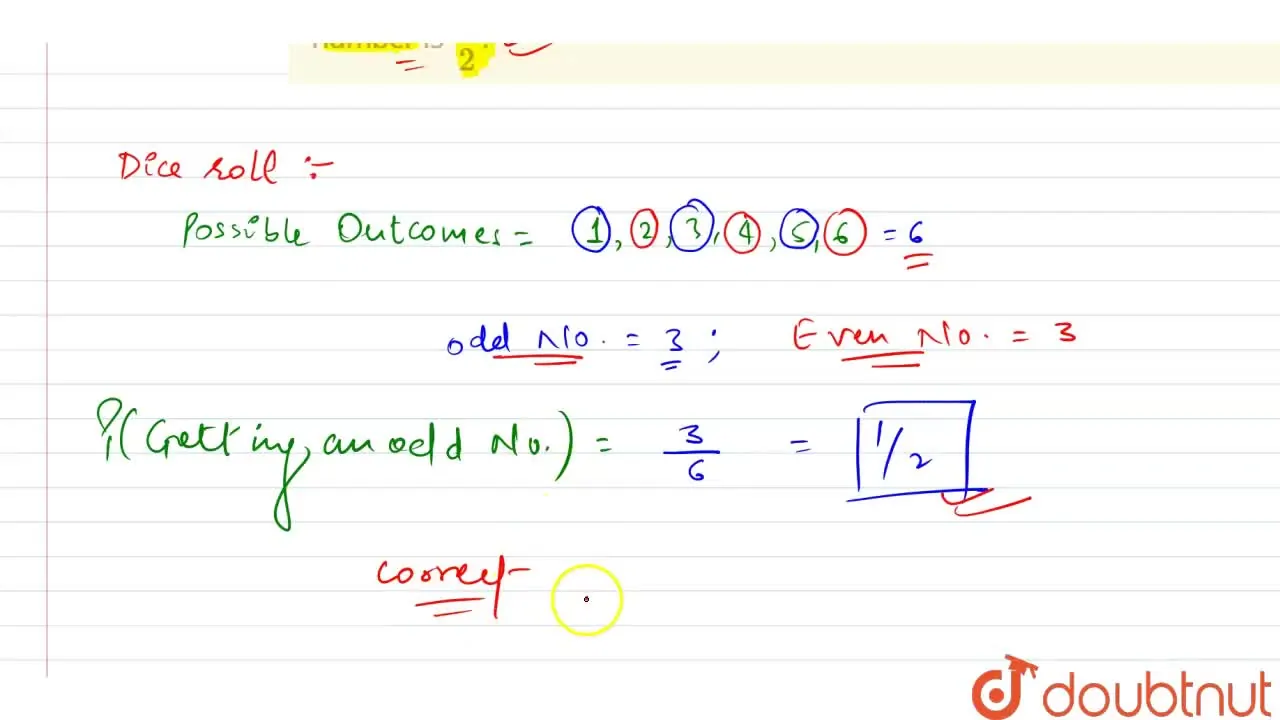 number is 1/2.
Dice roll :-
Possible Outcomes = 1, 2, 3, 4, 5, 6 = 6
odd No. = 3 ; Even No. = 3
P(Getting an odd No.) = 3/6 = 1/2
correct
doubtnut